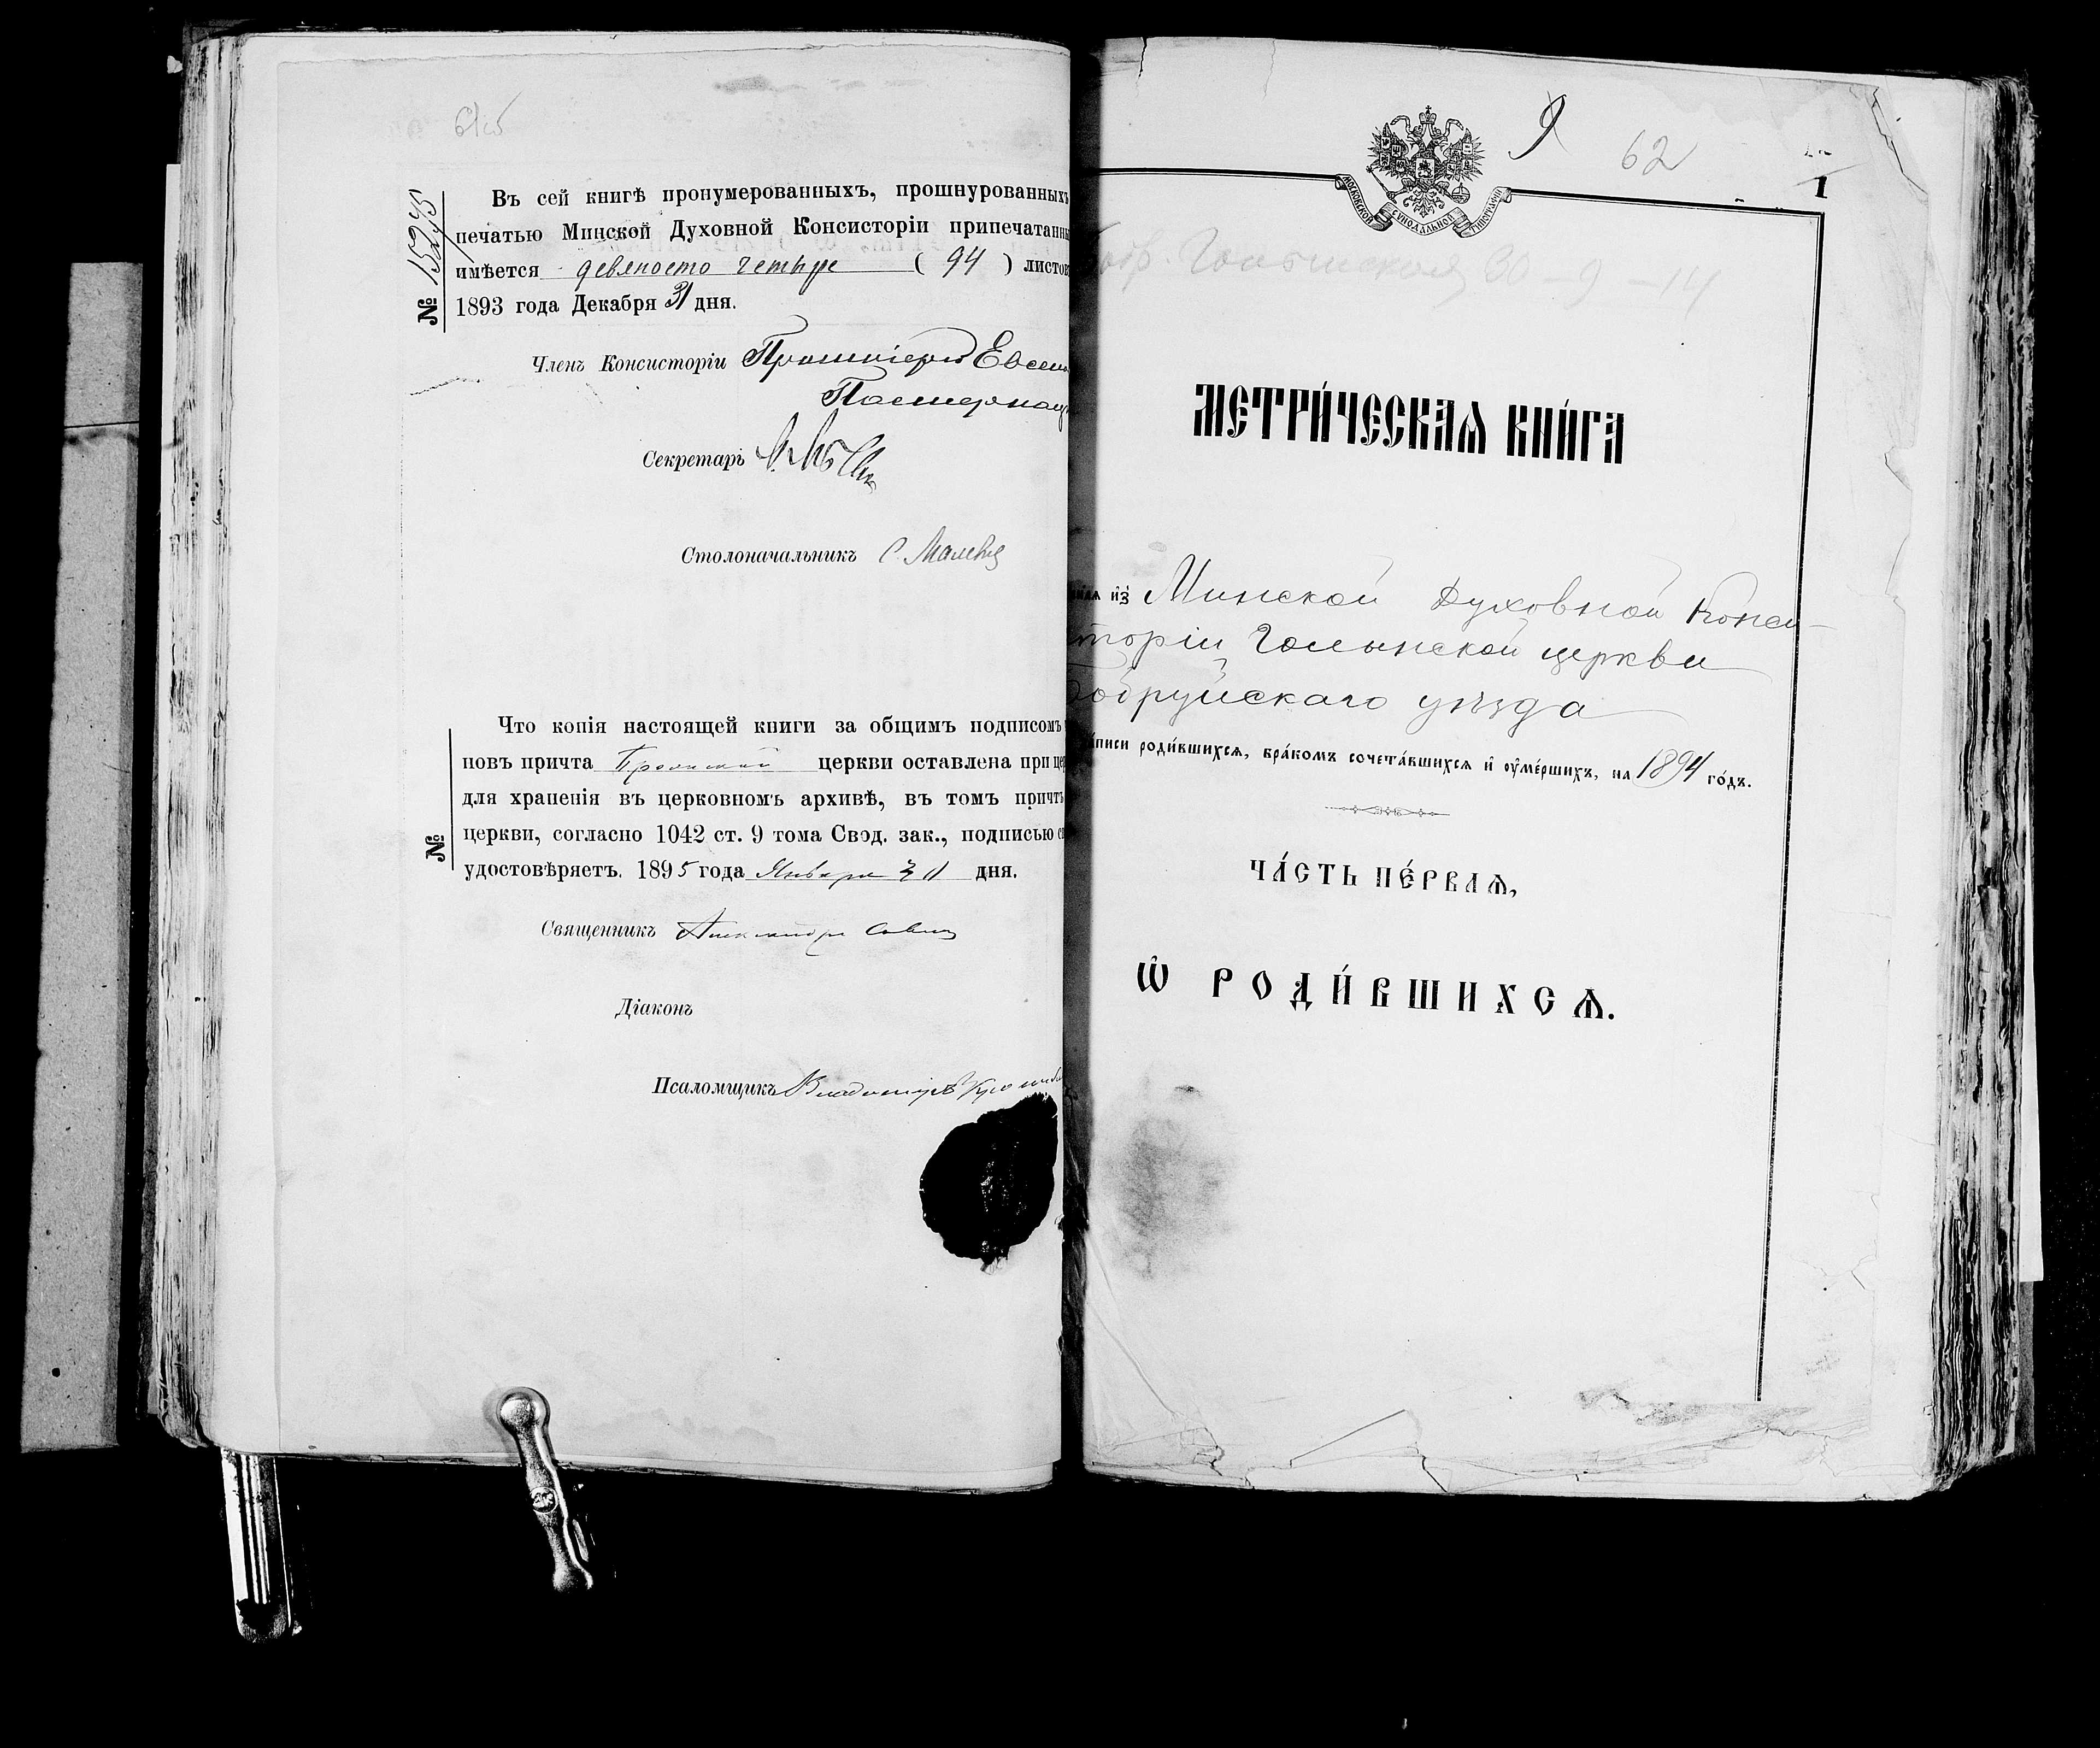 61об
Въ сей книгѣ пронумерованныхъ, прошнурованныхъ
печатью Минской Духовной Консисторіи припечатанны
имѣется девяносто четыре ( 94 ) листов
1893 года Декабря 31 дня.
№ 15945
Членъ Консисторіи Протоіерей Евсеви
Секретарь
Столоначальникъ С. Малевич
Что копія настоящей книги за общимъ подписомъ
повъ причта церкви оставлена при це
для храненія въ церковномъ архивѣ, въ томъ причтъ
церкви, согласно 1042 ст. 9 тома Свод. зак., подписью с
удостовѣряетъ. 1895 года Января 31 дня.
№
Священникъ Александръ Савич
Діаконъ
Псаломщикъ Владиміръ
9 62
1
МОСКОВСКОЙ СѴНОДАЛЬНОЙ ТИПОГРАФІИ
бр. Голынская 30 - 9 - 14
МЕТРИ́ЧЕСКАѦ КНИ́ГА
из̾ Минской Духовной Конси-
торіи Голынской церкви
обруйскаго уѣзда
а́писи роди́вшихсѧ, бра́комъ сочета́вшихсѧ и҆ ᲂу҆ме́ршихъ, на 1894 го́дъ.
ЧА́СТЬ ПЕ́РВАѦ,
Ѡ҆ РОДИ́ВШИХСѦ.